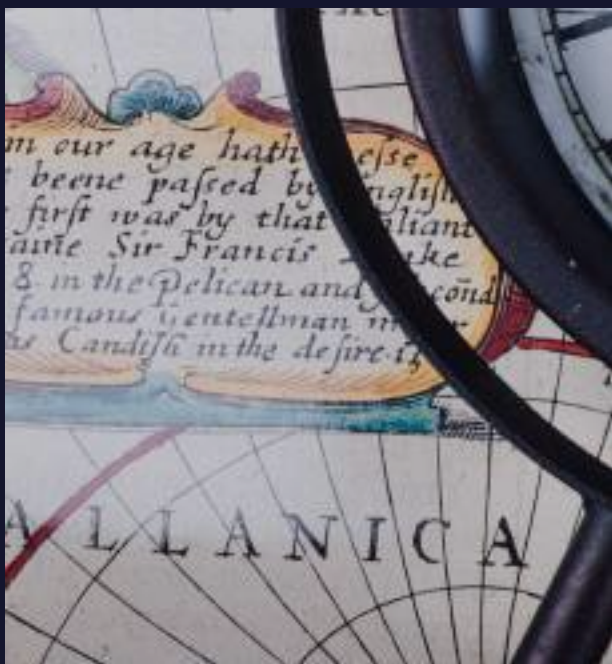 in our age hath esse
beene paſsed by Engliſh
first was by that valiant
Sir Francis Drake
8 in the Pelican and ſecond
famous Gentellman
Candiſh in the deſire
ALLANICA